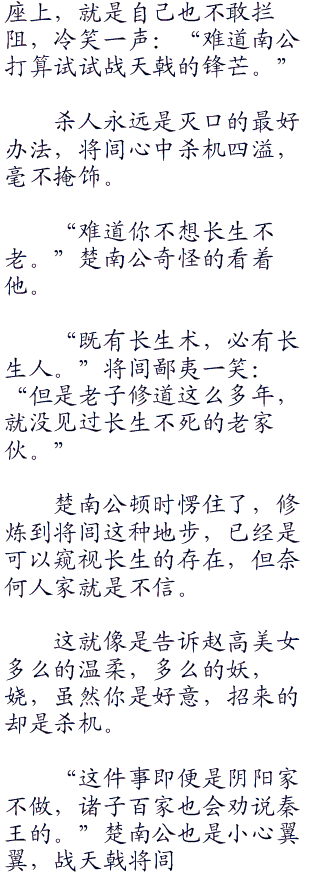 座上，就是自己也不敢拦
阻，冷笑一声：“难道南公
打算试试战天戟的锋芒。”
杀人永远是灭口的最好
办法，将闾心中杀机四溢，
毫不掩饰。
“难道你不想长生不
老。”楚南公奇怪的看着
他。
“既有长生术，必有长
生人。”将闾鄙夷一笑：
“但是老子修道这么多年，
就没见过长生不死的老家
伙。”
楚南公顿时愣住了，修
炼到将闾这种地步，已经是
可以窥视长生的存在，但奈
何人家就是不信。
这就像是告诉赵高美女
多么的温柔，多么的妖，
娆，虽然你是好意，招来的
却是杀机。
“这件事即便是阴阳家
不做，诸子百家也会劝说秦
王的。”楚南公也是小心翼
翼，战天戟将闾